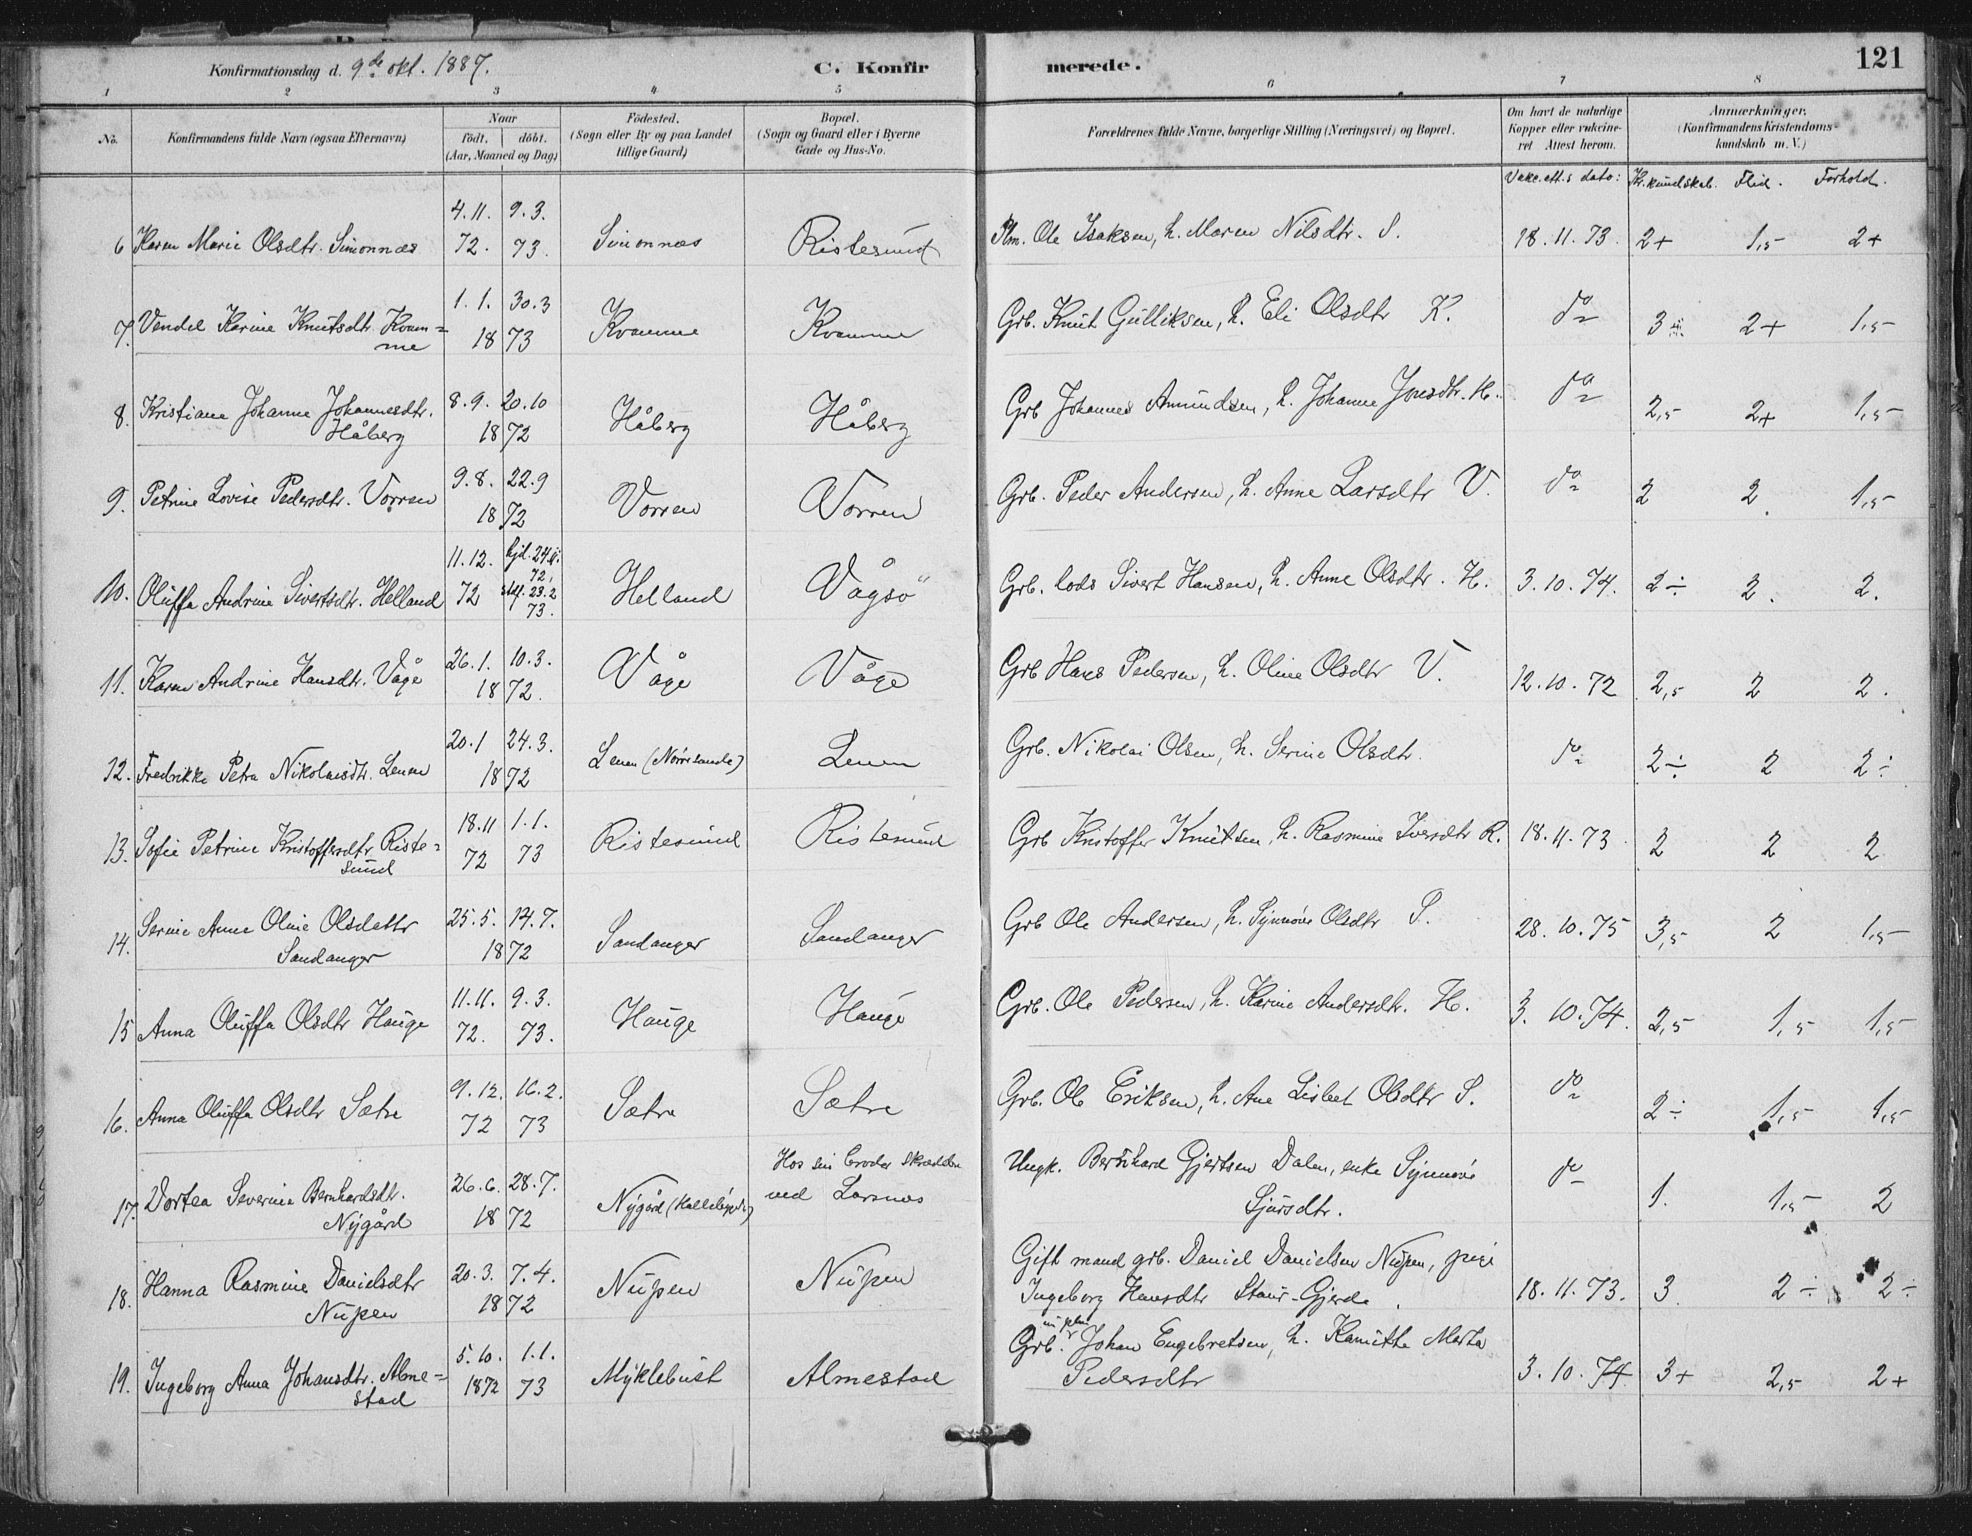 Konfirmationsdag d. 9de okt. 1887.
C. Konfirmerede.
121
1 2 3 4 5 6 7 8
No.
Konfirmandens fulde Navn (ogsaa Efternavn)
Naar
födt. döbt.
(Aar, Maaned og Dag)
Födested.
(Sogn eller By og paa Landet
tillige Gaard)
Bopæl.
(Sogn og Gaard eller i Byerne
Gade og Hus-No.
Forældrenes fulde Navne, borgerlige Stilling (Næringsvei) og Bopæl.
Om havt de naturlige
Kopper eller vakcine-
ret Attest herom.
Anmærkninger.
(Konfirmandens Kristendoms-
kundskab m. V.)
Vakc.att.s dato: Kr.kundskab. Flid. Forhold.
4.11. 9.3.
6 Karen Marie Olsdtr. Simonnæs 72. 73. Simonnæs Ristesund Plm. Ole Isaksen, h. Maren Nilsdtr. S. 18.11.73. 2+ 1,5 2+
1.1. 30.3
7. Vendel Karine Knutsdtr. Kvam= 18 73 Kvamme Kvamme Grb. Knut Gulliksen, h. Eli Olsdtr K. do 3 2+ 1,5
me
8.9. 20.10
8. Kristiane Johanne Johannesdtr. 18 72 Håberg Håberg Grb Johannes Amundsen, h. Johanne Jonsdtr. H. do 2,5 2+ 1,5
Håberg
9.8. 22.9
9. Petrine Lovise Pedersdtr. Vorren 18 72 Vorren Vorren Grb. Peder Andersen, h. Anne Larsdtr V. do 2 2. 1,5
11.12. hjd. 24
72,
10. Oluffa Andrine Sivertsdtr. Helland 72 23.2 Helland Vågsö Grb. lods Sivert Hansen, h. Anne Olsdtr. H. 3.10.74. 2÷ 2. 2.
73.
26.1. 10.3.
11. Karen Andrine Hansdtr. Våge 18 72. Våge Våge Grb Hans Pedersen, h. Oline Olsdtr V. 12.10.72 2,5 2 2.
20.1 24.3.
12. Fredrikke Petra Nikolaisdtr. Lenen 18 72 Lenen (Nörresande) Lenen Grb. Nikolai Olsen, h. Serine Olsdtr. do 2÷ 2 2÷
18.11 1.1.
13. Sofie Petrine Kristoffersdtr. Riste= 72 73 Ristesund Ristesund Grb Kristoffer Knutsen, h. Rasmine Iversdtr R. 18.11.73. 2 2 2
sund
25.5. 14.7.
14. Serine Anne Oline Olsdattr 18 72 Sandanger Sandanger Grb Ole Andersen, h. Synnöve Olsdtr S. 28.10.75 3,5 2 1,5
Sandanger
11.11. 9.3.
15 Anna Oluffa Olsdtr Hauge 72. 73. Hauge Hauge Grb. Ole Pedersen, h. Karine Andersdtr. H. 3.10.74. 2,5 1,5 1,5
9.12. 16.2.
16. Anna Oluffa Olsdtr Sætre 72 73 Sætre Sætre Grb. Ole Eriksen, h. Ane Lisbet Olsdtr S. do 2÷ 1,5 1,5
26.6. 28.7. Hos sin broder skrædder
17. Dortea Severine Bernhardsdtr. 18 72 Nygård ved Larsnæs Ungk. Bernhard Gjertsen Dalen, enke Synnöve do 1. 1,5 2
Nygård Sjursdtr.
20.3. 7.4.
18. Hanna Rasmine Danielsdtr 18 72 Nupen Nupen Gift mand grb. Daniel Danielsen Nupen, pige 18.11.73. 3. 2÷ 2÷
Nupen Ingeborg Hansdtr Staur-Gjerde.
5.10. 1.1.
19. Ingeborg Anna Johansdtr. Alme= 1872 73 Myklebust Almestad Grb. Johan Engebretsen, h. Kanutte Marta 3.10.74. 3+ 2,5 2+
stad Pedersdtr